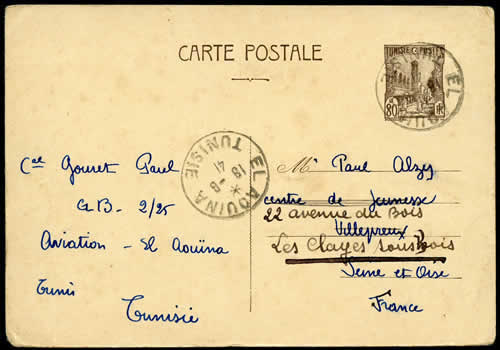 CARTE POSTALE
TUNISIE POSTES
80
EL AOUINA
TUNISIE
* 18-8
41
Cal Gouret Paul
G.B- 2/25
Aviation - El Aouïna
Tunis
Tunisie
Mr Paul Alzy
centre de Jeunesse
22 avenue du Bois
Villepreux
Les Clayes sous Bois
Seine et Oise
France